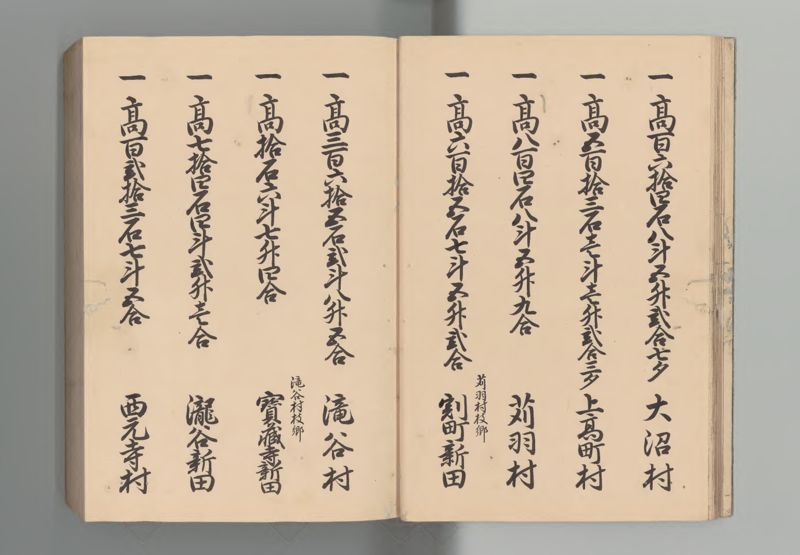 一高百六拾四石八斗五升弐合七夕 大沼村
一高五百拾三石壱斗壱升弐合三夕 上高町村
一高八百四石八斗五升九合 苅羽村
苅羽村枝郷
一高六百拾五石七斗五升弐合 割町新田
一高三百六拾五石弐斗八升五合 滝谷村
滝谷村枝郷
一高拾石六斗七升四合 寶蔵寺新田
一高七拾四石四斗弐升壱合 瀧谷新田
一高百弐拾三石七斗五合 西元寺村